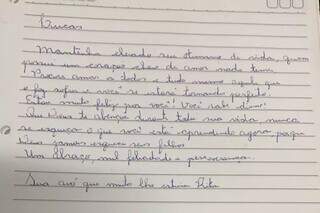 Lucas
Mantenha elevado seu otimismo de vida, quem
possui um coração cheio de amor nada teme.
Procure amar a todos e tudo mesmo aquilo que
o faz sofrer e você se estará tornando perfeito.
Estou muito feliz por você! Você sabe disso!
Que Deus te abençoe durante toda sua vida nunca
se esqueça o que você está aprendendo agora porque
Deus jamais esquece seus filhos.
Um abraço, mil felicidades e perseverança.
Sua avó que muito lhe estima Rita